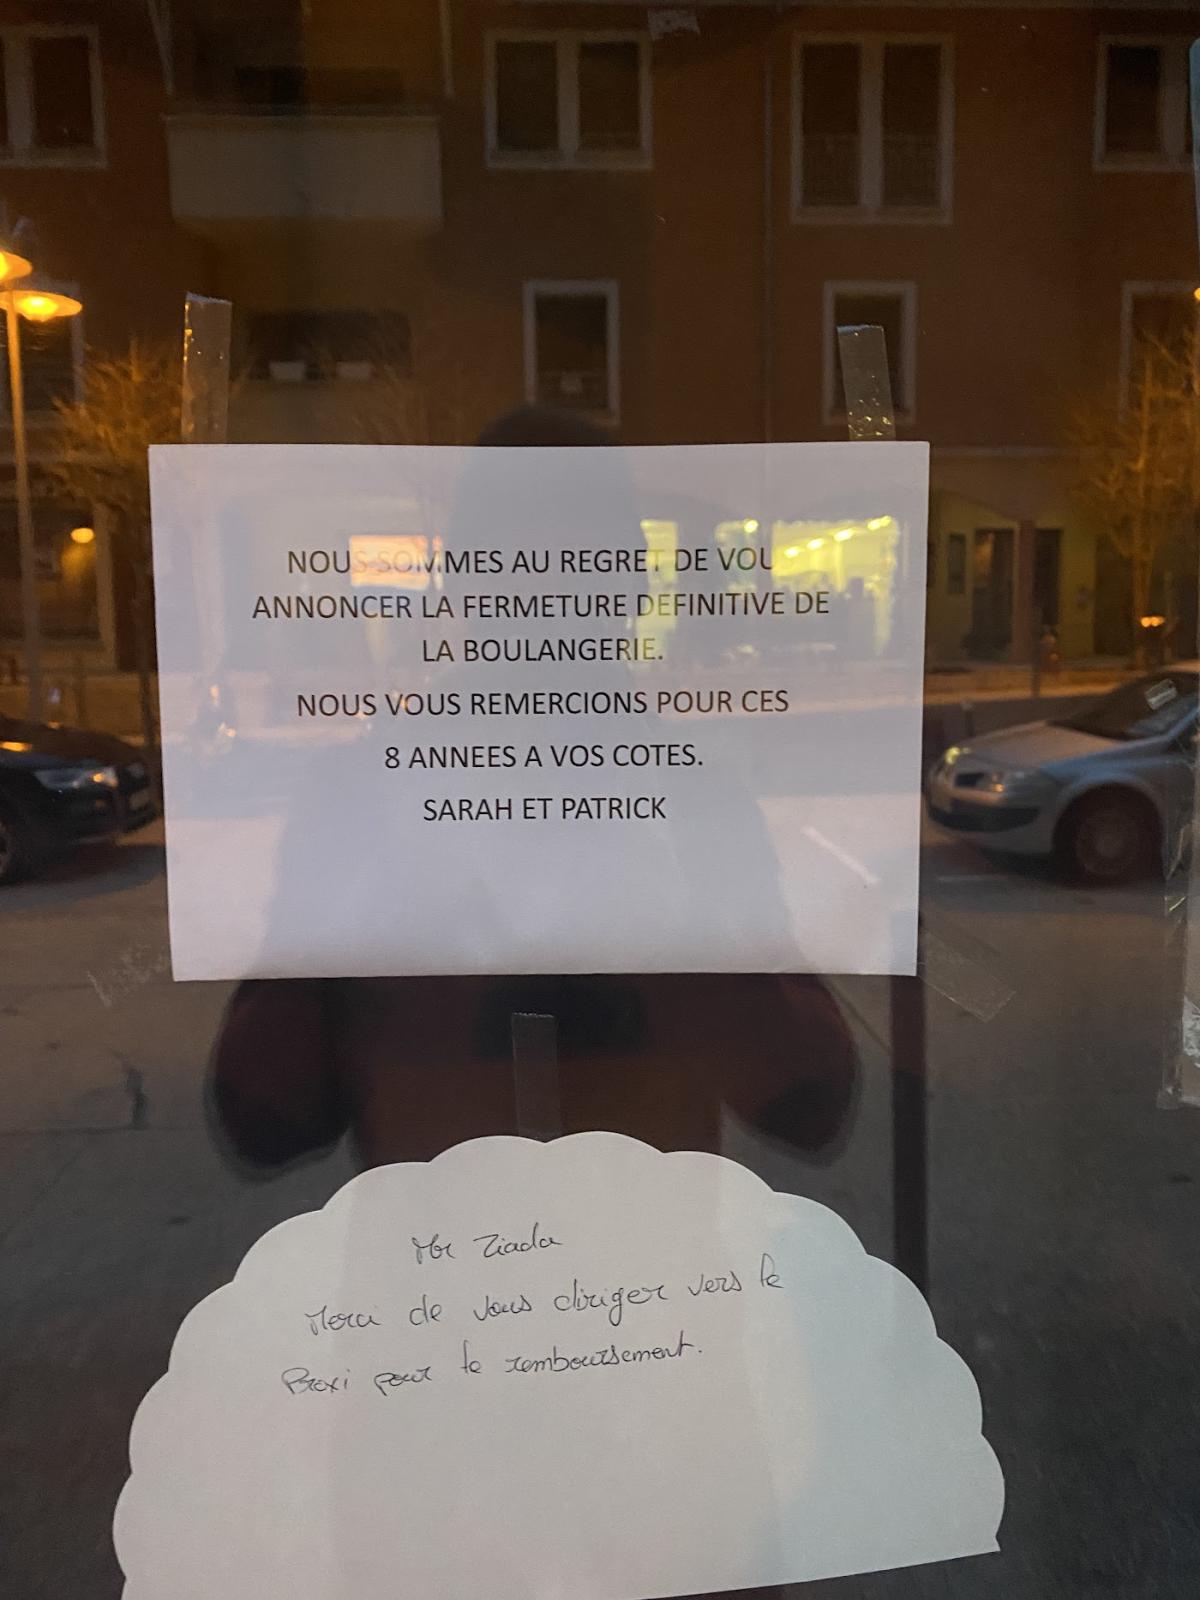 NOUS SOMMES AU REGRET DE VOUS
ANNONCER LA FERMETURE DEFINITIVE DE
LA BOULANGERIE.
NOUS VOUS REMERCIONS POUR CES
8 ANNEES A VOS COTES.
SARAH ET PATRICK
Mr Ziada
Merci de vous diriger vers le
Proxi pour le remboursement.